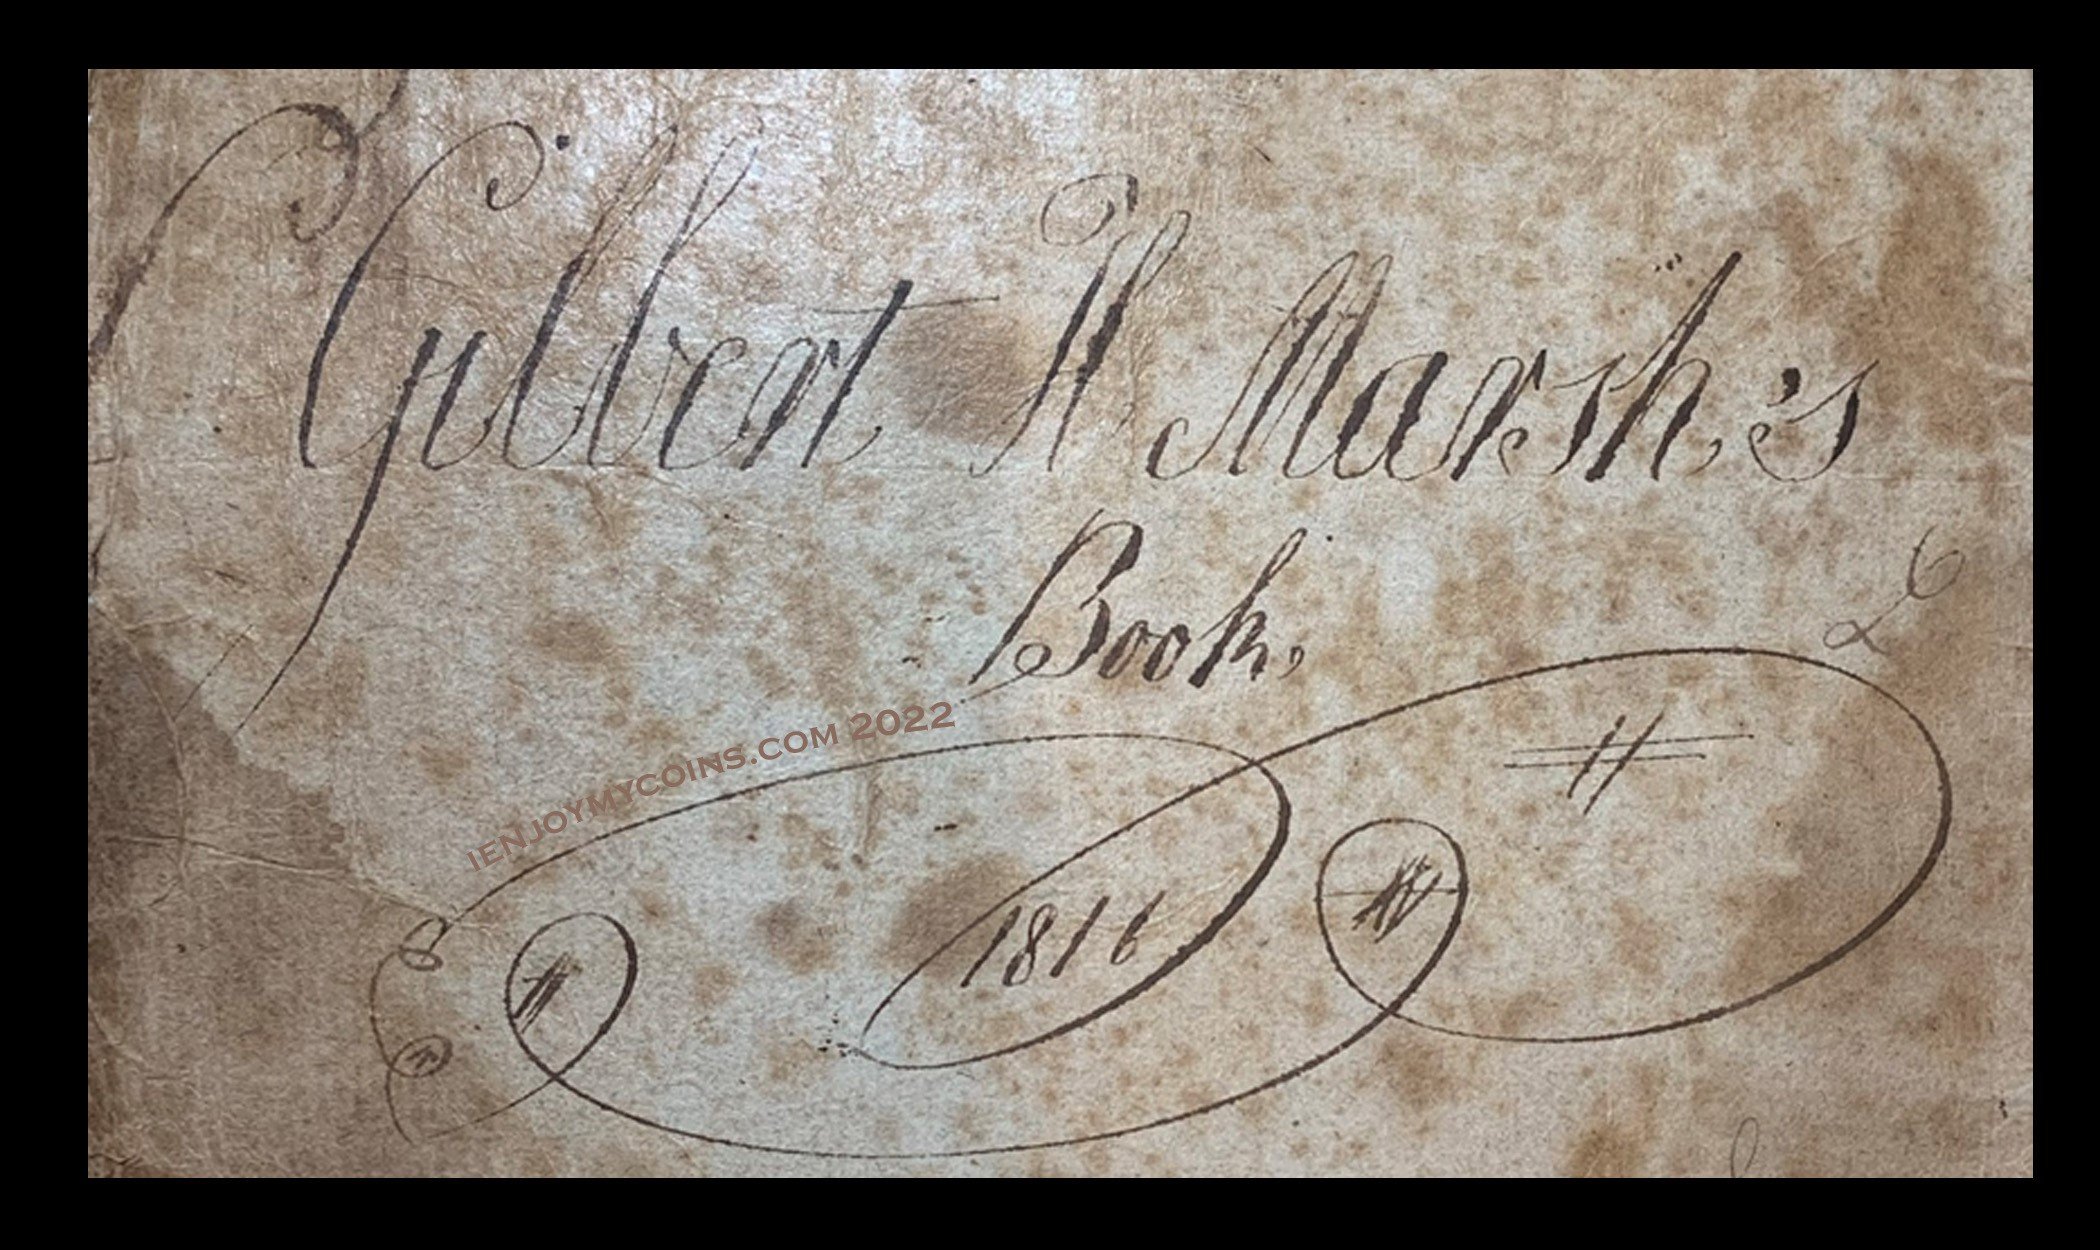 Gilbert H Marsh's
Book,
IENJOYMYCOINS.COM 2022
1816